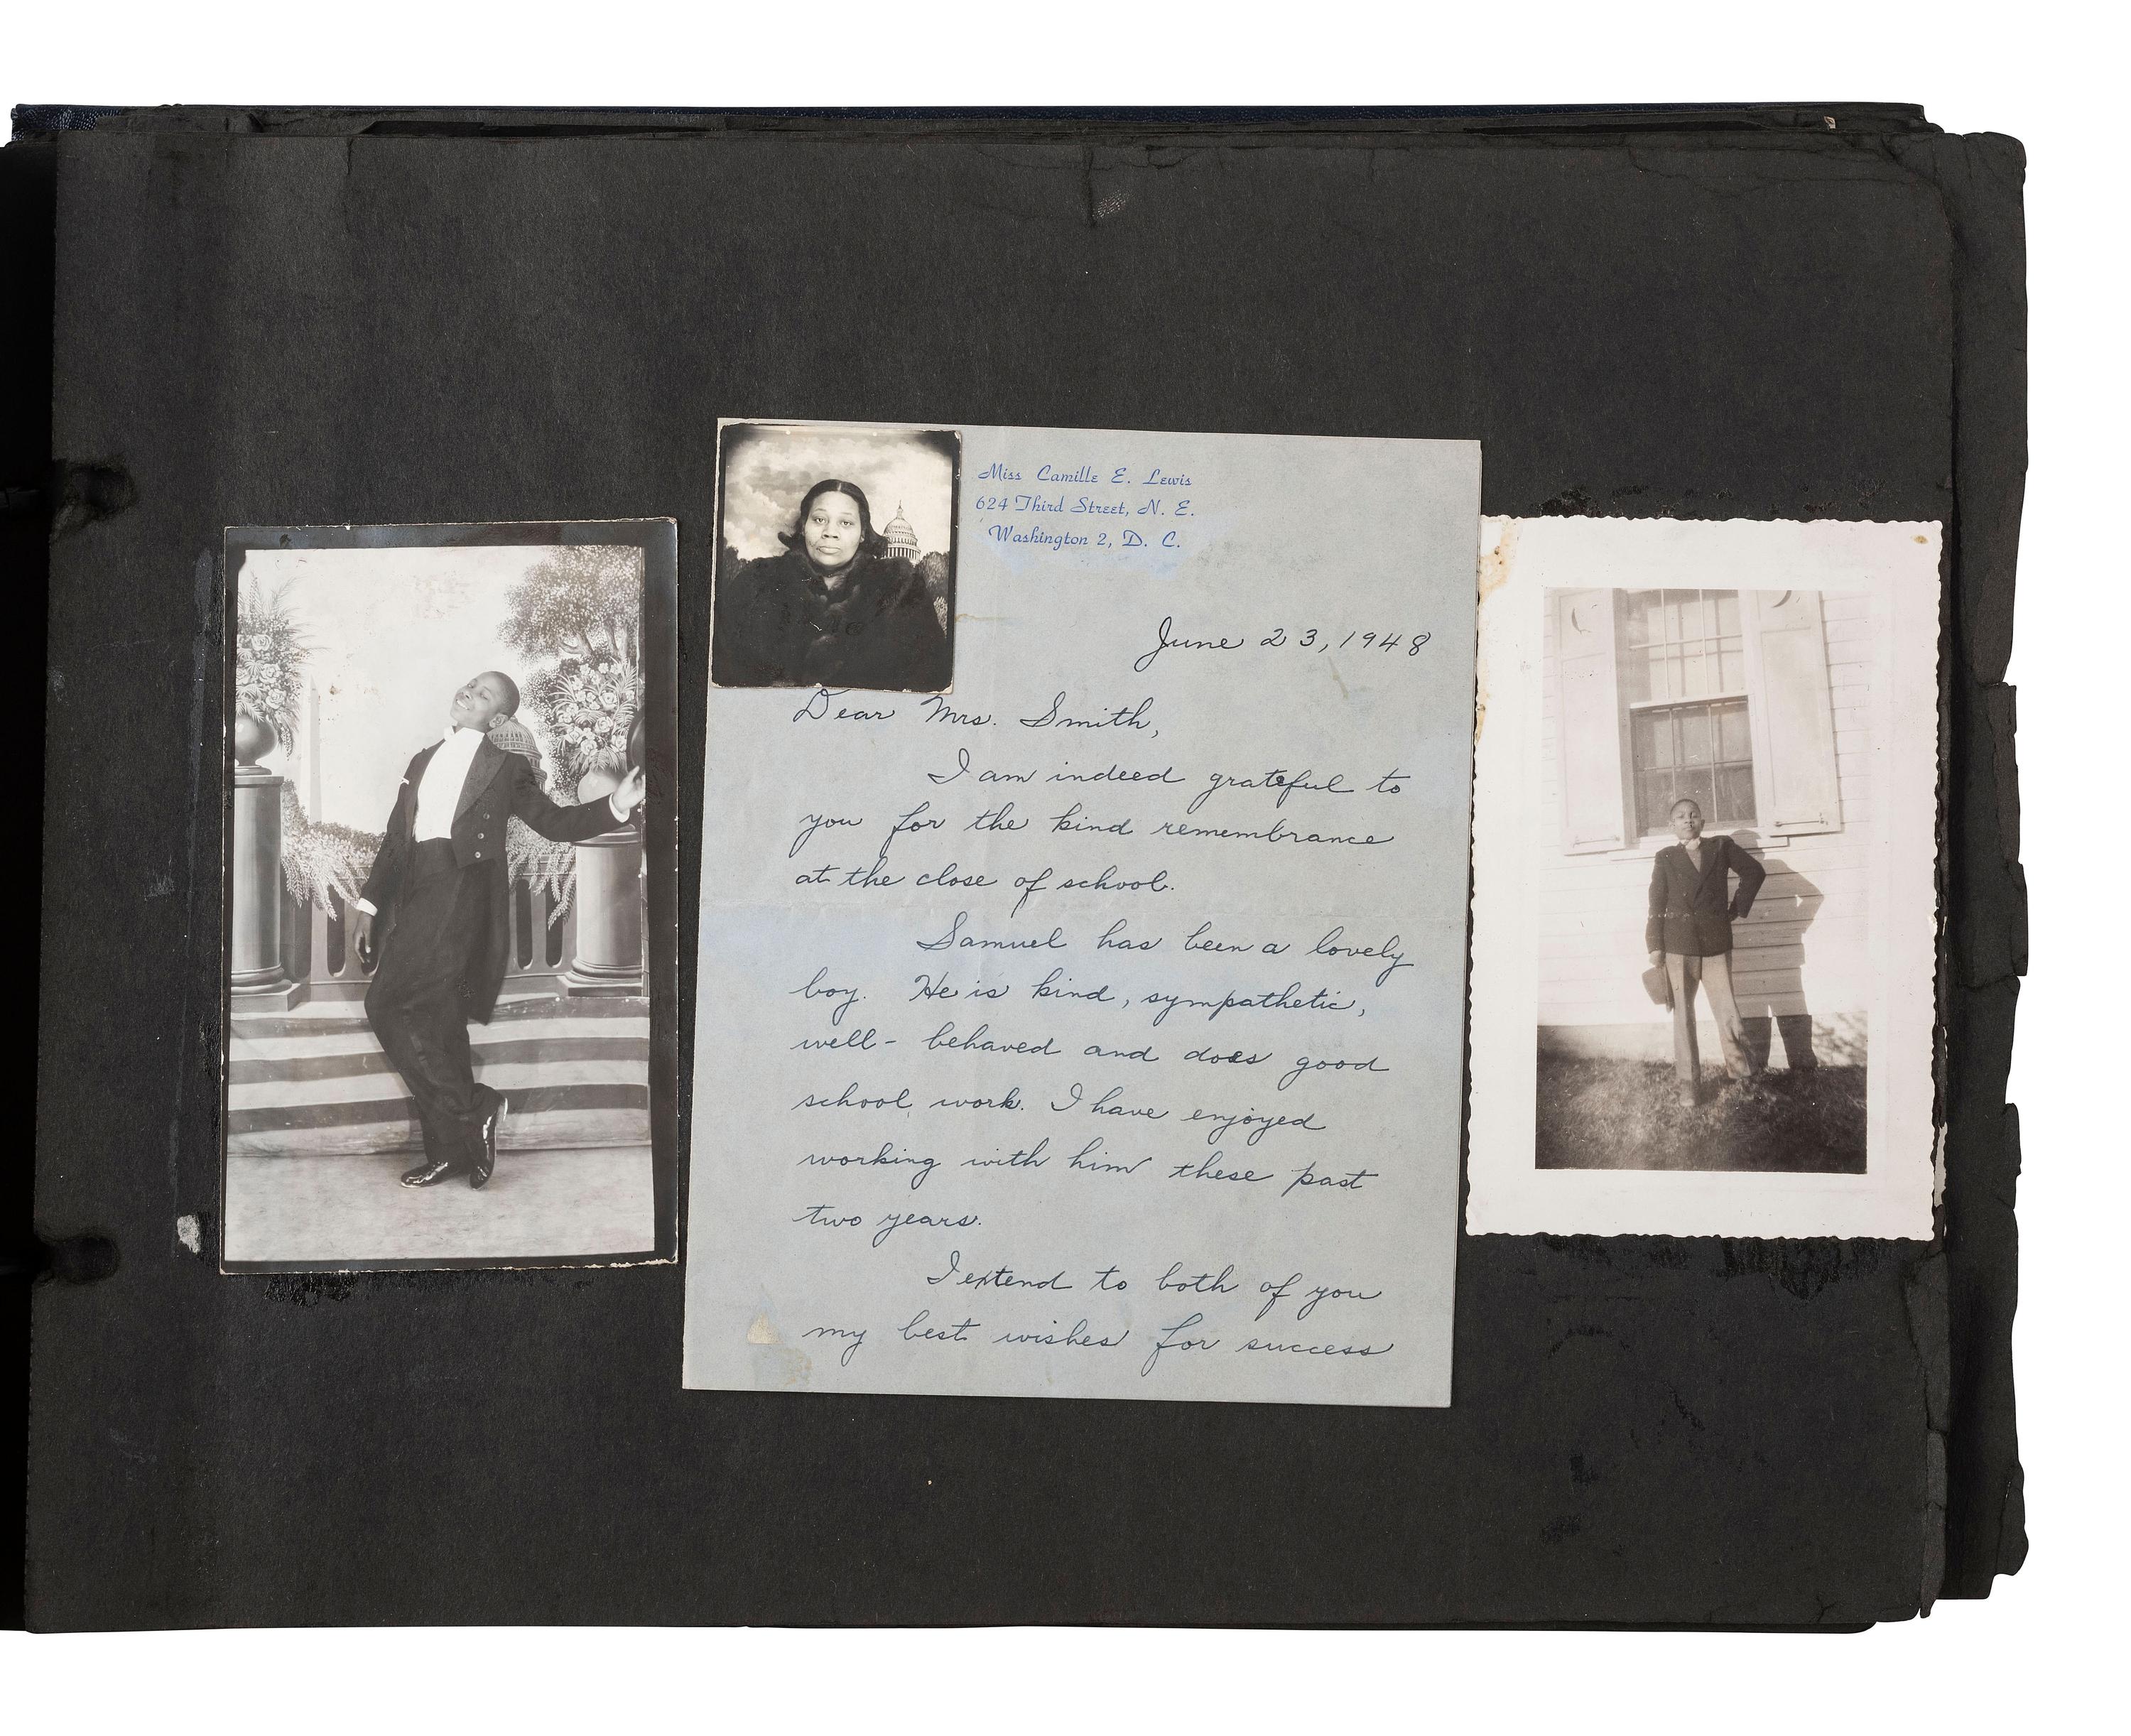 Miss Camille E. Lewis
624 Third Street, N. E.
Washington 2, D. C.
June 23, 1948
Dear Mrs. Smith,
I am indeed grateful to
you for the kind remembrance
at the close of school.
Samuel has been a lovely
boy. He is kind, sympathetic,
well-behaved and does good
school work. I have enjoyed
working with him these past
two years.
I extend to both of you
my best wishes for success